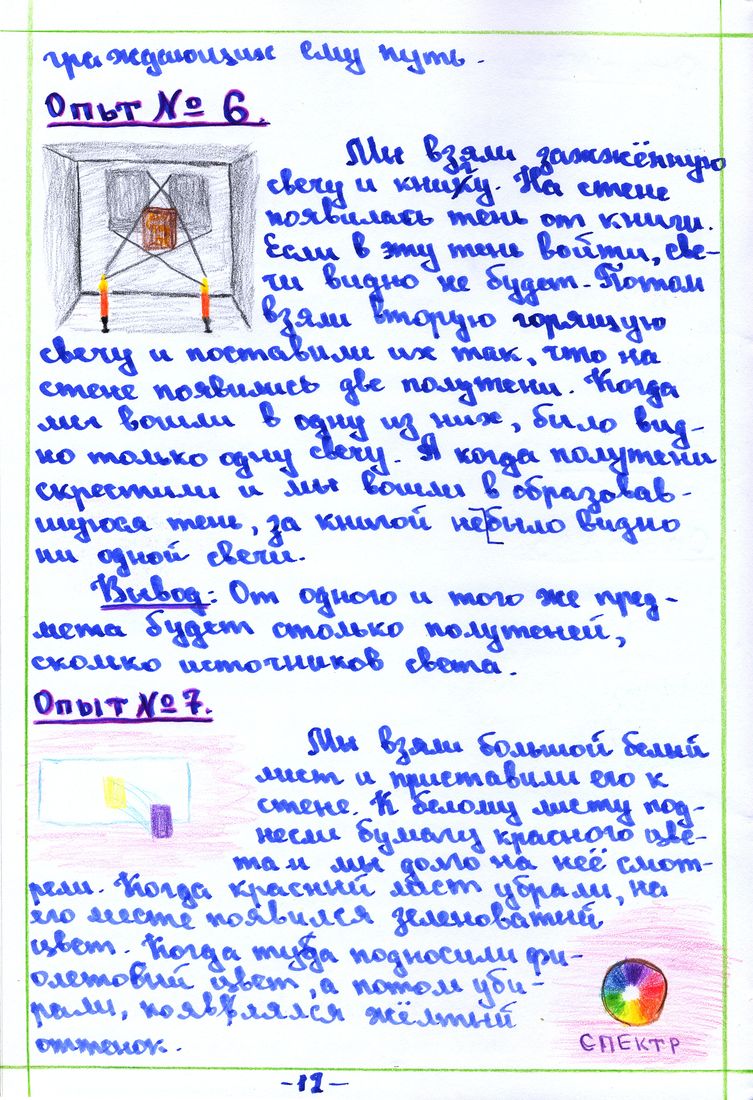 граждающих ему путь.
Опыт № 6.
Мы взяли зажжённую
свечу и книгу. На стене
появилась тень от книги.
Если в эту тень войти, све-
чи видно не будет. Потом
взяли вторую горящую
свечу и поставили их так, что на
стене появились две полутени. Когда
мы вошли в одну из них, было вид-
но только одну свечу. А когда полутени
скрестили и мы вошли в образовав-
шуюся тень, за книгой не было видно
ни одной свечи.
Вывод: От одного и того же пред-
мета будет столько полутеней,
сколько источников света.
Опыт № 7.
Мы взяли большой белый
лист и приставили его к
стене. К белому листу под-
несли бумагу красного цве-
та и мы долго на неё смот-
рели. Когда красный лист убрали, на
его месте появился зеленоватый
цвет. Когда туда подносили фи-
олетовый цвет, а потом уби-
рали, появлялся жёлтый
оттенок.
СПЕКТР
-12-